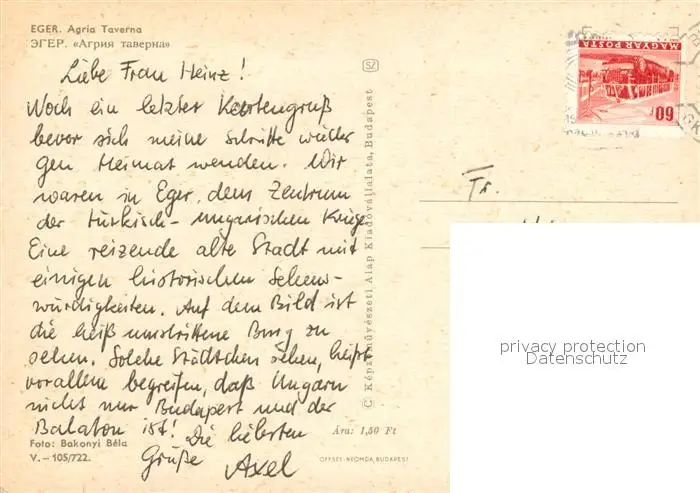 EGER. Agria Taverna
ЭГЕР. «Агрия таверна»
Liebe Frau Heinz!
Noch ein letzter Kartengruß
bevor sich meine Schritte wieder
gen Heimat wenden. Wir
waren in Eger, dem Zentrum
der türkisch-ungarischen Kriege.
Eine reizende alte Stadt mit
einigen historischen Sehens-
würdigkeiten. Auf dem Bild ist
die heiß umstrittene Burg zu
sehen. Solche Städtchen sehen, heißt
vor allem begreifen, daß Ungarn
nicht nur Budapest und der
Balaton ist! Die liebsten
Grüße Axel
Foto: Bakonyi Béla
V.—105/722.
Ára: 1,50 Ft
OFFSET-NYOMDA, BUDAPEST
© Képzőművészeti Alap Kiadóvállalata, Budapest
SZ
MAGYAR POSTA
60f
Fr.
privacy protection
Datenschutz